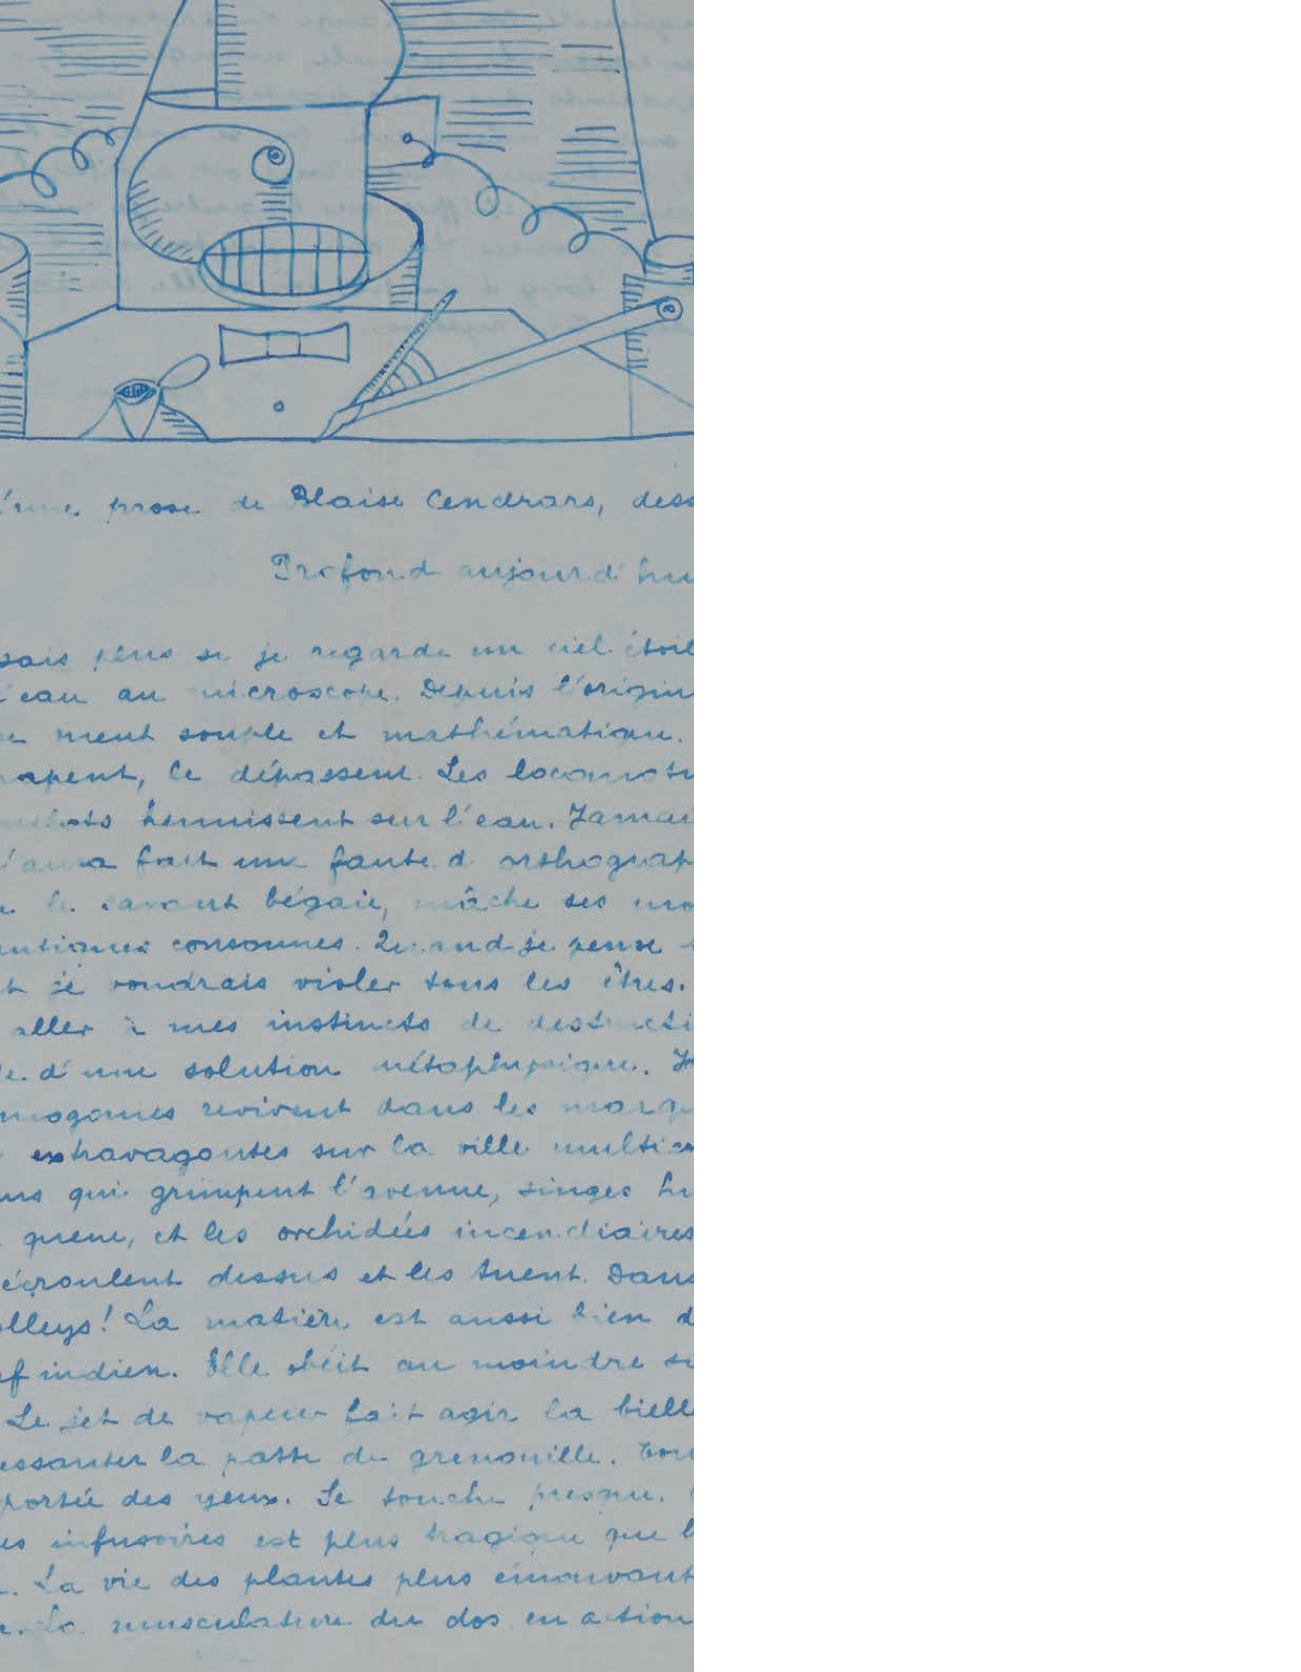 prose de Blaise Cendrars, dess
Profond aujourd'hu
sais plus si je regarde un ciel étoil
'eau au microscope. Depuis l'origin
ment souple et mathématique.
apent, le dépassent. Les locomoti
hennissent sur l'eau. Jamai
'aura fait une faute d'orthograp
le savant bégaie, mâche ses mo
consonnes. Quand je pense
je voudrais violer tous les êtres.
aller à mes instincts de destructi
d'une solution métaphysique. J
revivent dans les marqu
extravagantes sur la ville multico
qui grimpent l'avenue, singes hu
queue, et les orchidées incendiaires
écroulent dessus et les tuent. Dans
olleys! La matière est aussi bien d
ef indien. Elle obéit au moindre si
Le jet de vapeur fait agir la biell
essauter la patte de grenouille. Tou
portée des yeux. Se touche presque.
es infusoires est plus tragique que l
La vie des plantes plus émouvant
La musculature du dos en action